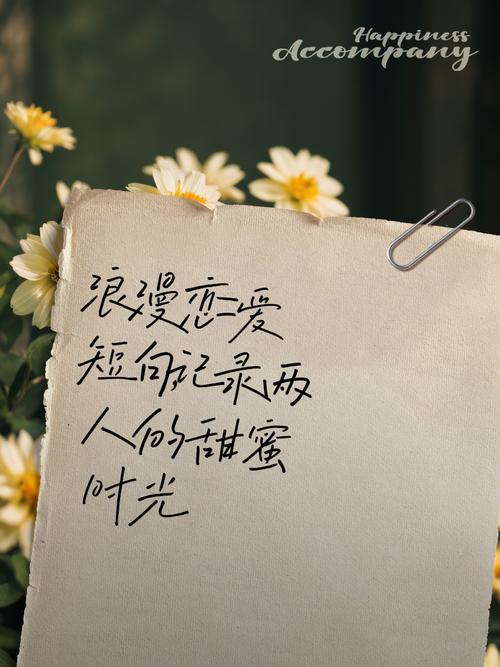 Happiness
Accompany
浪漫恋爱
短句记录两
人的甜蜜
时光